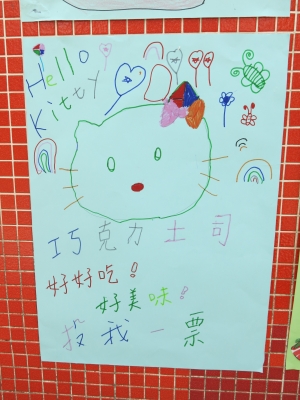 Hello
Kitty
巧克力土司
好好吃！
好美味！
投我一票